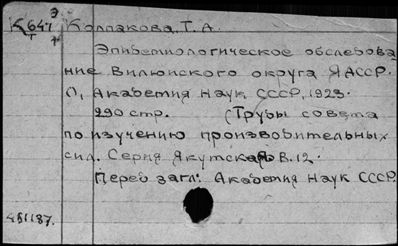 К647
Т
Э
Т
Колпакова, Т. А.
Эпидемиологическое обследова
ние Вилюйского округа ЯАССР.
Л, Академия Наук СССР, 1928.
290 стр. (Труды совета
по изучению производительных
сил. Серия Якутская В. 12.
Перед загл: Академия Наук СССР.
461187.